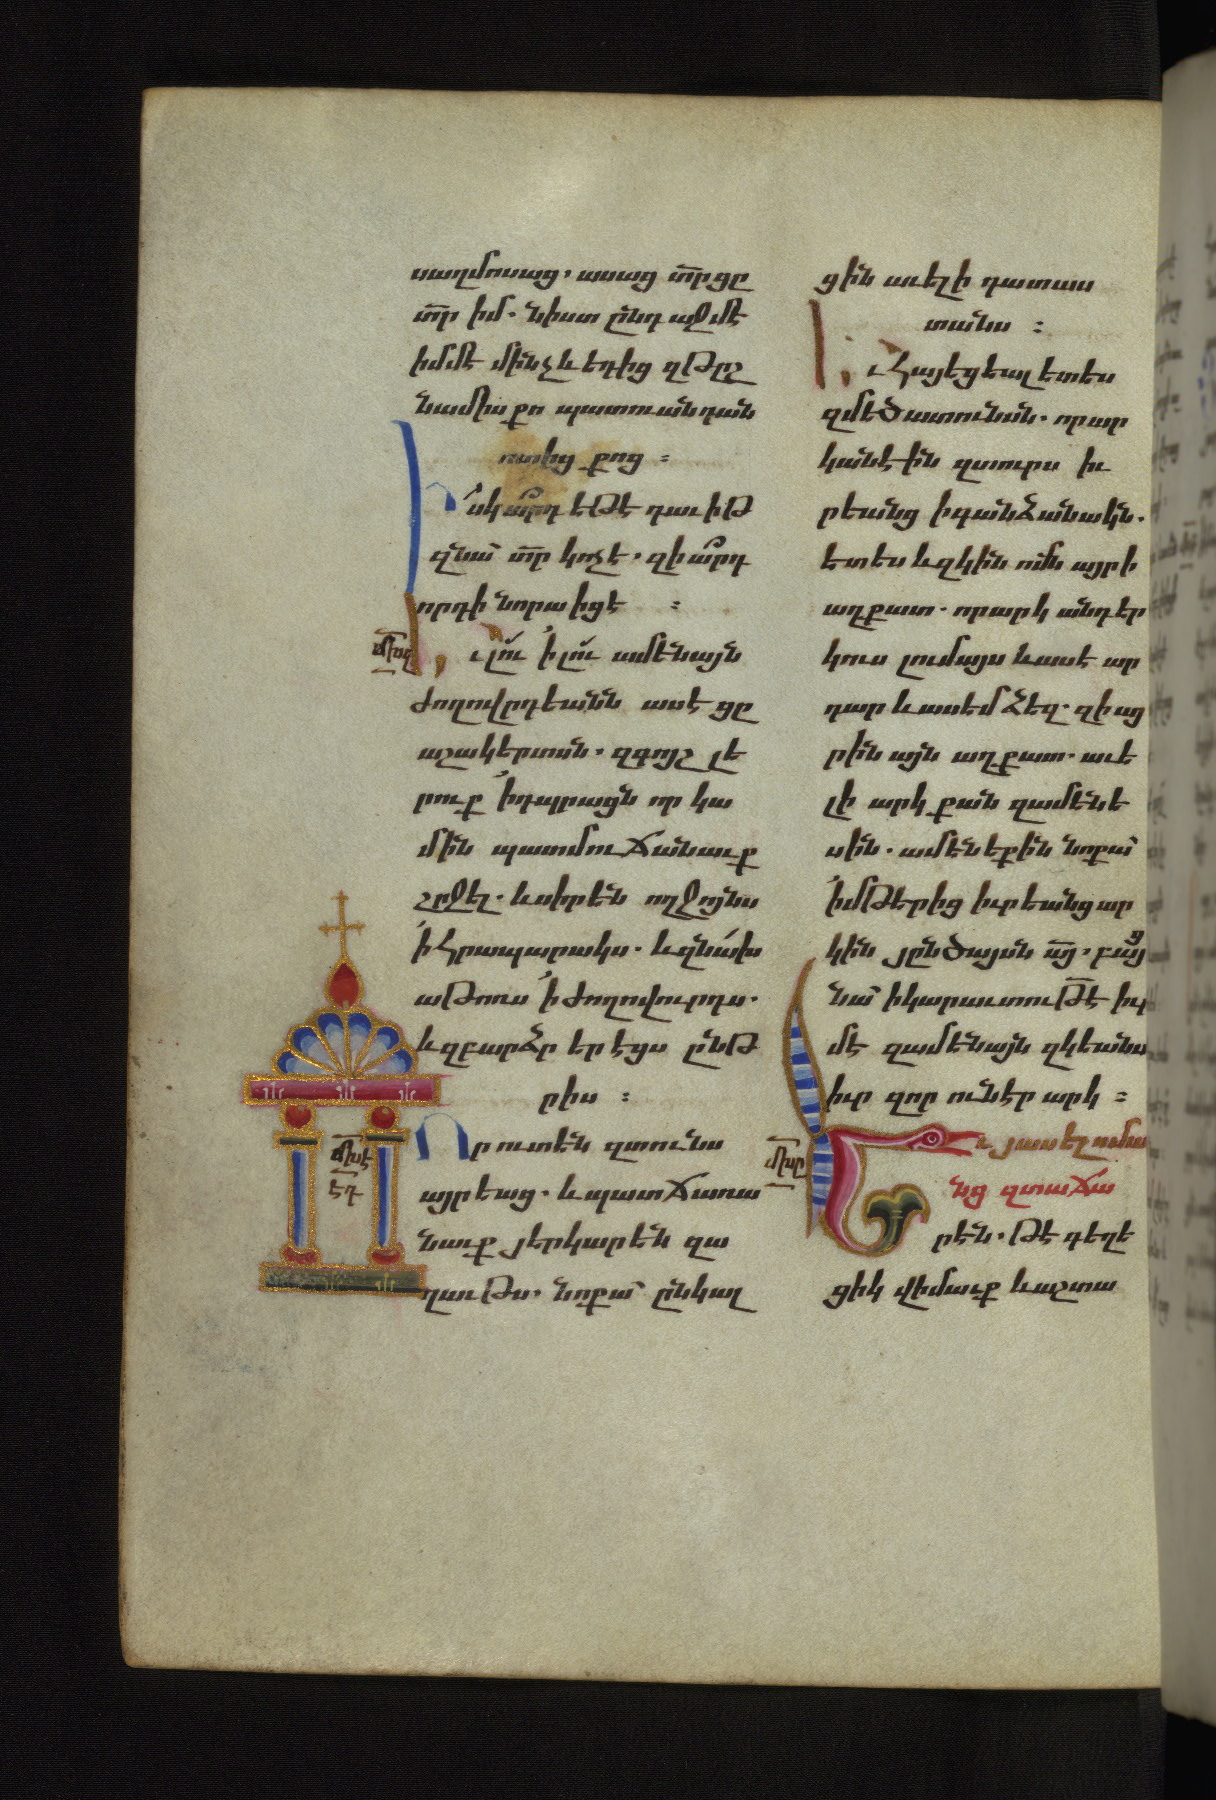 սաղմոսաց․ ասաց տ՜ր ցը
տ՜ր իմ․ նիստ ընդ աջմէ
իմմէ մինչև եդից զթըշ
նամիս քո պատուանդան
ոտից քոց ։
Իսկ արդ եթէ դաւիթ
զնա տ՜ր կոչէ․ զիարդ
որդի նորա իցէ ։
Եւ ի լու ամենայն
ժողովըրդեանն ասէ ցը
աշակերտսն․ զգոյշ լե
րուք ի դպրացն որ կա
մին պատմուճանաւք
շրջել․ և սիրեն ողջոյնս
ի հրապարակս․ և զնախ
աթոռս ի ժողովուրդս․
և զբարձր երէցս ընթ
րիս ։
Որ ուտեն զտունս
այրեաց․ և պատճառա
նաւք յերկարեն զա
ղաւթս․ նոքա ընկալ
ցին աւելի դատաս
տանս ։
Եւ հայեցեալ ետես
զմեծատունսն․ որ ար
կանէին զտուրս իւ
րեանց ի գանձանակն․
ետես և զկին ոմն այրի
աղքատ․ որ արկ անդ եր
կուս լումայս և ասէ ար
դար և ասեմ ձեզ․ զի այ
րին այն աղքատ․ աւե
լի արկ քան զամենե
սին․ ամենեքին նոքա
ի մթերից իւրեանց ար
կին յընծայսն ա՜յ․ բայց
նա ի կարաւտութէ՜ իւր
մէ զամենայն զկեանս
իւր զոր ունէր արկ ։
Եւ յասել ոմա
նց զտաճա
րէն․ թէ գեղե
ցիկ վիմաւք և աշտա